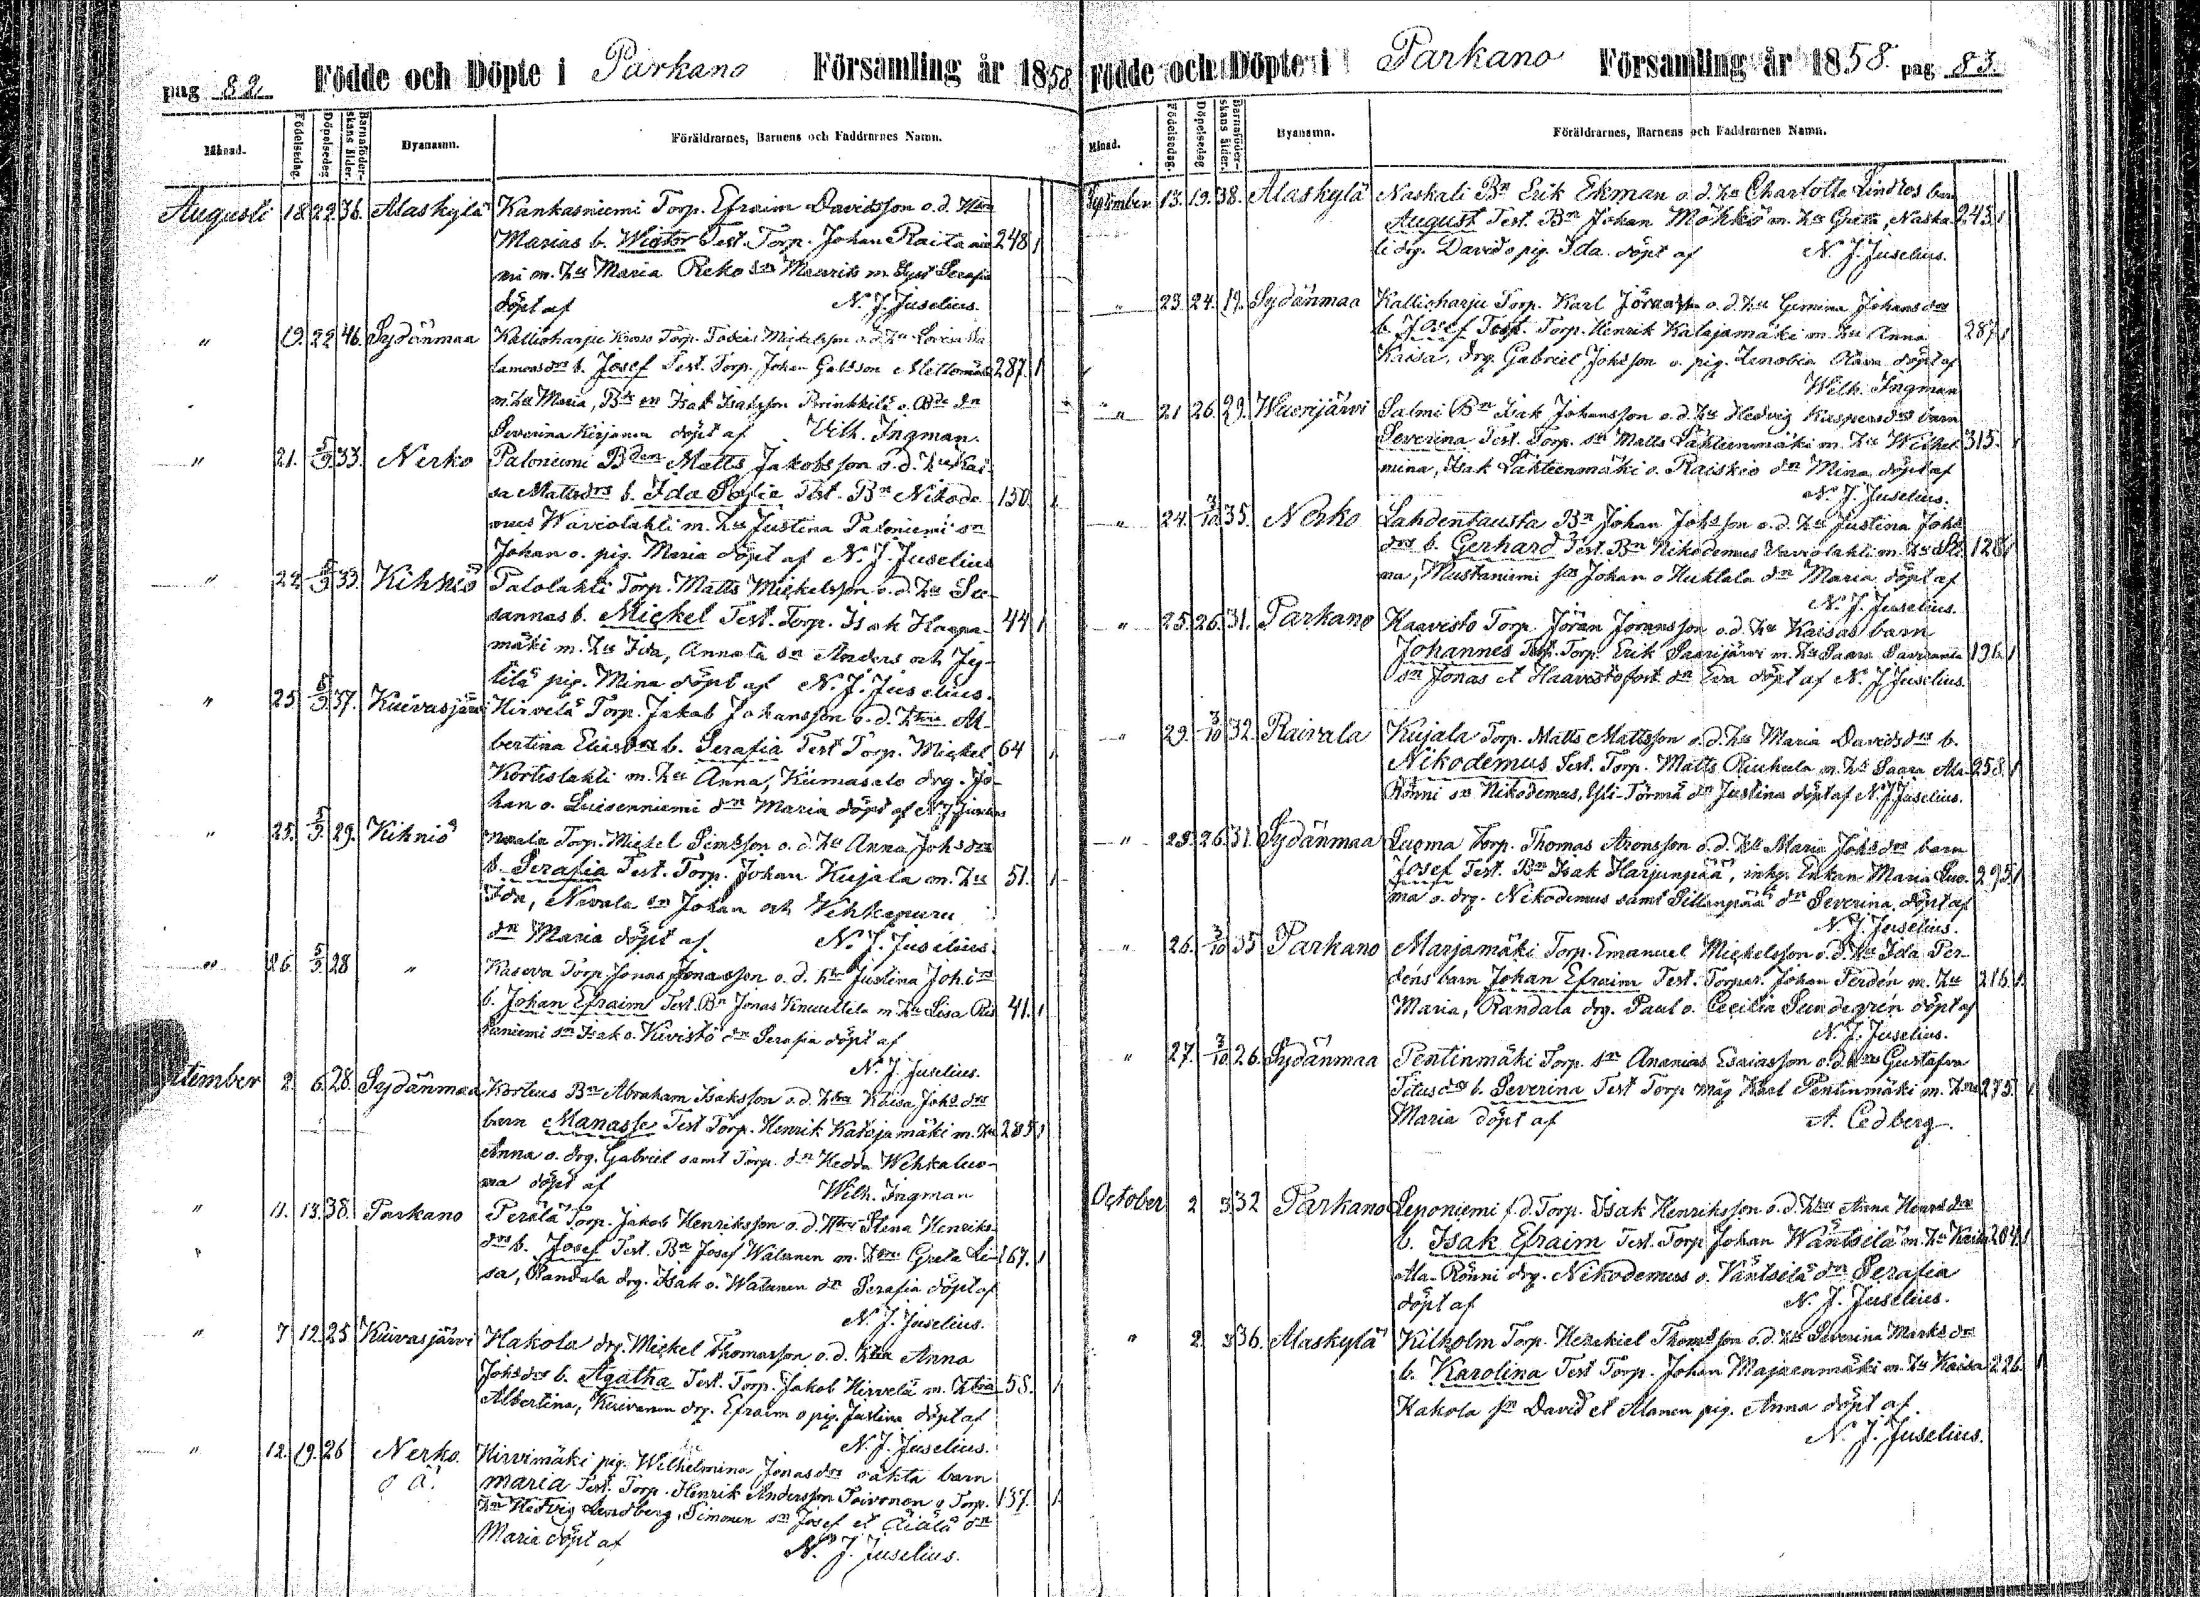 pag 82. Födde och Döpte i Parkano Församling år 1858
Månad. Födelsedag. Döpelsedag. Barnaföderskans ålder. Byanamn. Föräldrarnes, Barnens och Faddrarnes Namn.
Augusti 18 22 36. Alaskylä Kankasniemi Torp. Efraim Davidsson o. d. Hu
Marias b. Wictor Test. Torp. Johan Raita 248 1
mi m. Hu Maria Reko Serafia
döpt af N. J. Juselius.
" 19. 22 46. Sydänmaa Kallioharju Torp. Tobias Mickelsson o. d. Hu Lovisa
b. Josef Test. Torp. Johan Gabsson 287. 1
m. Hu Maria, Isak Isaksson o. Bde dn
Severina Kirjanen döpt af Vilh. Ingman.
" 21. 5/9. 33. Nerko Paloniemi Bden Matts Jakobsson o. d. Hu Kai-
sa Mattsdrs b. Ida Sofia Test. Bn Nikode 150. 1
mus Wariolahti m. Hu Justina Paloniemi sn
Johan o. pig. Maria döpt af N. J. Juselius
" 22. 5/9 33. Kihniö Palolahti Torp. Matts Mickelsson o. d. Hu Su-
sannas b. Mickel Test. Torp. Isak Haapa- 44 1
mäki m. Hu Ida, Annala sn Anders och Jy-
lilä pig. Mina döpt af N. J. Juselius.
" 25 5/9. 37. Kuivasjärvi Hirvelä Torp. Jakob Johansson o. d. Hu Al-
bertina Eliasdrs b. Serafia Test Torp. Mickel 64 1
Korteslahti m. Hu Anna, Kiimasalo drg. Jo-
han o. Luisenniemi dn Maria döpt af N J Juselius
" 25. 5/9. 29. Kihniö Torp. Mickel Simsson o. d. Hu Anna Johsdrs
b. Serafia Test. Torp. Johan Kujala m. Hu 51. 1
Ida, Nevala sn Johan och Vehkapuru
dn Maria döpt af N. J. Juselius.
" 26. 5/9. 28 " Kaseva Torp. Jonas Jonasson o. d. Hu Justina Johsdrs
b. Johan Efraim Test. Bn Jonas Knuuttila m. Hu Lisa 41. 1
sn Isak o. Kivistö dn Serafia döpt af
N. J. Juselius.
tember 2. 6. 28. Sydänmaa Korteus Bn Abraham Isaksson o. d. Hu Kaisa Johsdrs
barn Manasse Test Torp. Henrik Katajamäki m. Hu 285 1
Anna o. drg. Gabriel samt Torp. dn Hedda Wehkaluo-
ma döpt af Wilh. Ingman
" 11. 13. 38. Parkano Perälä Torp. Jakob Henriksson o. d. Hu Stena Henriks-
drs b. Josef Test. Bn Josef Watanen m. Hu Greta Li- 167. 1
sa, Randala drg. Isak o. Watanen dn Serafia döpt af
N. J. Juselius.
" 7 12. 25 Kuivasjärvi Hakola drg. Mickel Thomasson o. d. Hu Anna
Johsdrs b. Agatha Test. Torp. Jakob Hirvelä m. Hu 58. 1
Albertina, drg. Efraim o pig. Justina döpt af
N. J. Juselius.
" 12. 19. 26 Nerko. Hirvimäki pig. Wilhelmina Jonasdrs oäkta barn
o ä. maria Test. Torp. Henrik Andersson Toivonen o Torp. 137. 1
Hedvig Lundberg, Simonen sn Josef et dn
Maria döpt af
N. J. Juselius.
Födde och Döpte i Parkano Församling år 1858. pag 83.
Månad. Födelsedag. Döpelsedag. Barnaföderskans ålder. Byanamn. Föräldrarnes, Barnens och Faddrarnes Namn.
September 13. 19. 38. Alaskylä Naskali Bn Erik Ekman o. d. Hu Charlotta Lindros barn
August Test. Bn Johan Mohkiö m. Hu Greta, Naska- 243 1
li drg. David o pig. Ida. döpt af N. J. Juselius.
" 23 24. 19. Sydänmaa Kallioharju Torp. Karl o. d. Hu Gemina Johansdrs
b. Josef Test. Torp. Henrik Katajamäki m. Hu Anna 287 1
Kaisa, drg. Gabriel Johsson o. pig. Zenobia döpt af
Wilh. Ingman
" 21 26. 29. Wuorijärvi Salmi Bn Isak Johansson o. d. Hu Hedvig Kaspersdrs barn
Severina Test. Torp. sn Matts Lähteenmäki m. Hu Wilhel- 315. 1
mina, Isak Lähteenmäki o. Raiskio dn Mina döpt af
N. J. Juselius.
" 24. 3/10 35. Nerko Lahdentausta Bn Johan Johsson o. d. Hu Justina Johs
drs b. Gerhard Test. Bn Nikodemus Wariolahti m. Hu 128 1
na, Mustaniemi sn Johan o Huhtala dn Maria döpt af
N. J. Juselius.
" 25. 26. 31. Parkano Haavisto Torp. Jöran Joransson o. d. Hu Kaisas barn
Johannes Test. Torp. Erik Saarijärvi m. Hu Saara 196 1
sn Jonas et Haavisto fost. dn Eva döpt af N. J Juselius.
" 29. 3/10 32. Raivala Kujala Torp. Matts Mattsson o. d. Hu Maria Davidsdrs b.
Nikodemus Test. Torp. Matts Riuhula m. Hu Saara Ala- 258. 1
Rönni sn Nikodemus, Yli-Törmä dn Justina döpt af N. J. Juselius.
" 23. 26. 31. Sydänmaa Luoma Torp. Thomas Aronsson o. d. Hu Maria Johsdrs barn
Josef Test. Bn Isak Harjunpää, inhs. Enkan Maria Luo- 295 1
ma o. drg. Nikodemus samt Sillanpää dn Severina. döpt af
N. J. Juselius.
" 26. 3/10 35 Parkano Marjamäki Torp. Emanuel Mickelsson o. d. Hu Ida Fer-
déns barn Johan Efraim Test. Torpar. Johan Ferdén m. Hu 216. 1.
Maria, Randala drg. Paul o. Cecilia Sundegrén döpt af
N. J. Juselius.
" 27. 3/10 26. Sydänmaa Pentinmäki Torp. sn Ananias Esaiasson o. d. Hus Gustafva
Titusdrs b. Severina Test Torp måg Karl Pentinmäki m. Hu 275. 1
Maria döpt af A. Cedberg.
October 2 3 32 Parkano Leponiemi f. d. Torp. Isak Henriksson o. d. Hu Anna Henrsdrs
b. Isak Efraim Test. Torp Johan Wäntsilä m. Hu Kaisa 204 1
Ala-Rönni drg. Nikodemus o. Väntsilä dn Serafia
döpt af N. J. Juselius.
" 2. 3 36. Alaskylä Kilholm Torp. Hezekiel Thomsson o. d. Hu Severina Marksdrs
b. Karolina Test Torp. Johan Majaanmäki m. Hu Kaisa 226. 1
Hakola sn David et Alanen pig. Anna döpt af.
N. J. Juselius.